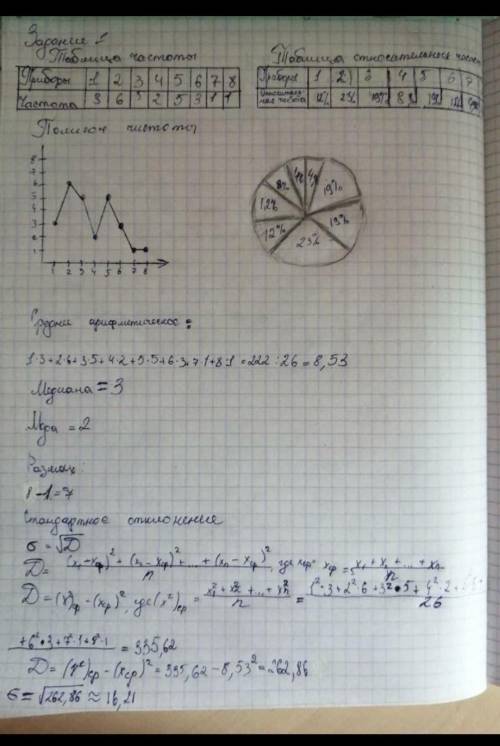 Задание 1
Таблица частоты
Приборы 1 2 3 4 5 6 7 8
Частота 3 6 5 2 5 3 1 1
Таблица относительной
Приборы 1 2 3 4 5 6 7
12% 23% 19% 8% 19% 12%
Полигон частоты
8
7
6
5
4
3
2
1
1 2 3 4 5 6 7 8
8% 4% 4% 19%
12% 19%
12% 23%
Средние арифметическое:
1·3+2·6+3·5+4·2+5·5+6·3+7·1+8·1=222:26=8,53
Медиана = 3
Мода = 2
Размах:
8-1=7
Стандартное отклонение
σ = √D
D= (x₁-xср)² + (x₂-xср)² + ... + (xₙ-xср)² / n, где xср = x₁+x₂+...+xₙ / n
D = (x²)ср - (xср)², где (x²)ср = x₁²+x₂²+...+xₙ² / n = 1²·3+2²·6+3²·5+4²·2+ / 26
+6²·3+7·1+8²·1 = 335,62
D = (x²)ср - (xср)² = 335,62 - 8,53² = 262,86
σ = √262,86 ≈ 16,21